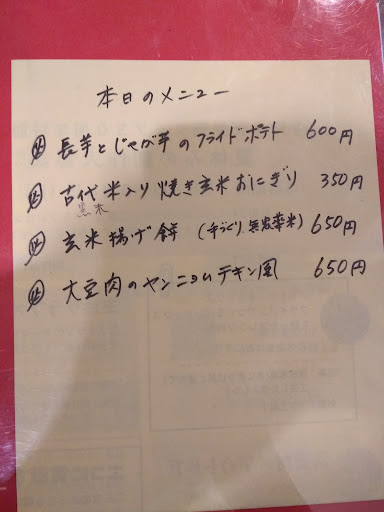 本日のメニュー
長芋とじゃが芋のフライドポテト 600円
古代米入り焼き玄米おにぎり 350円
黒米
玄米揚げ餅 (手づくり 無農薬米) 650円
大豆肉のヤンニョムチキン風 650円